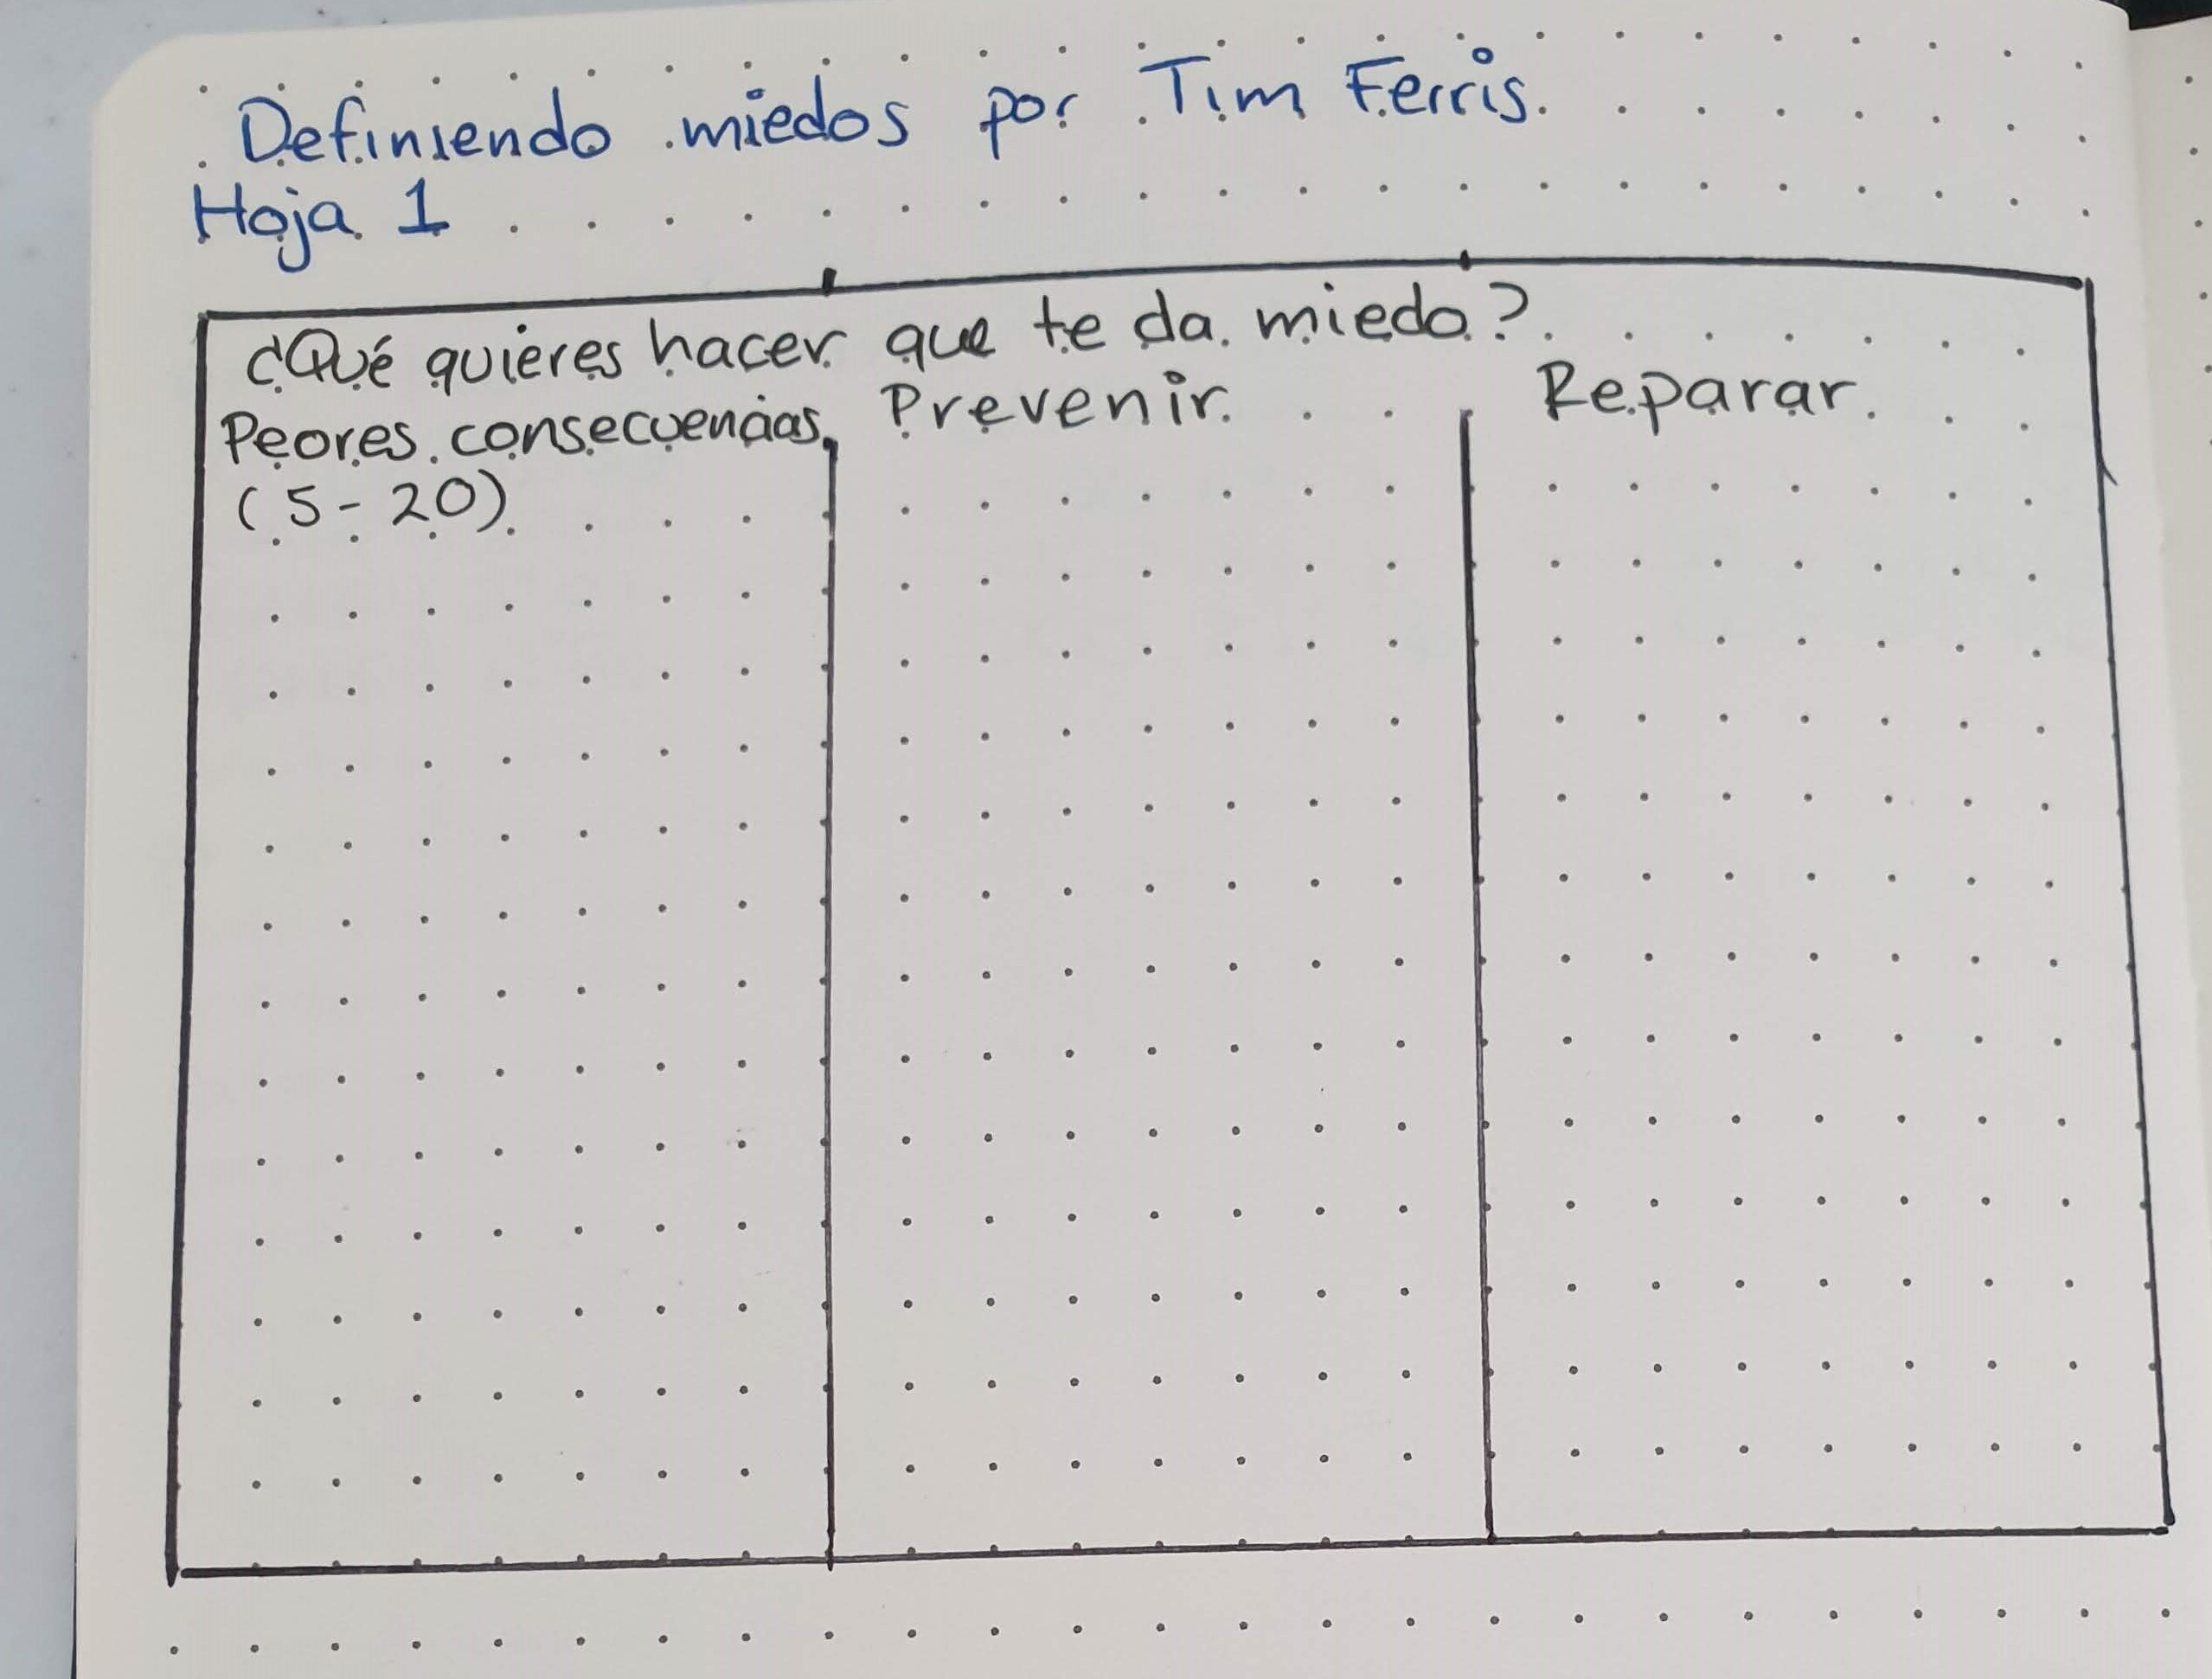 Definiendo miedos por Tim Ferris.
Hoja 1
¿Qué quieres hacer que te da miedo?
Peores consecuencias Prevenir Reparar
(5-20)